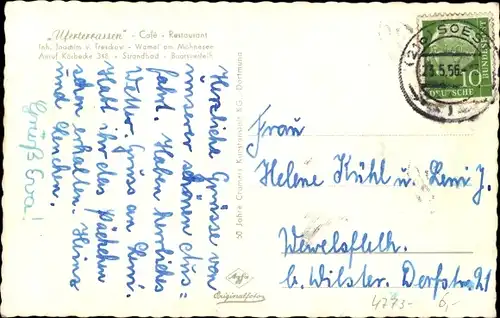 „Uferterrassen“ - Café - Restaurant
Inh. Joachim v. Freskow - Wamel am Möhnesee
Anruf Körbecke 348 - Strandbad - Bootsverleih
Herzliche Grüsse von
unserer schönen Aus=
fahrt. Haben herrliches
Wetter. Gruss an Leni.
Habt ihr das päckchen
schon erhalten. Heinz
und Lenchen.
Gruß Eva!
60 Jahre Cramers Kunstanstalt KG. Dortmund
Agfa
Originalfoto
(21b) SOEST
23.5.56
1
10
DEUTSCHE
BUNDESPOST
Frau
Helene Kühl u. Leni J.
Wewelsfleth.
b. Wilster. Dorfstr. 21
4795- 6,-